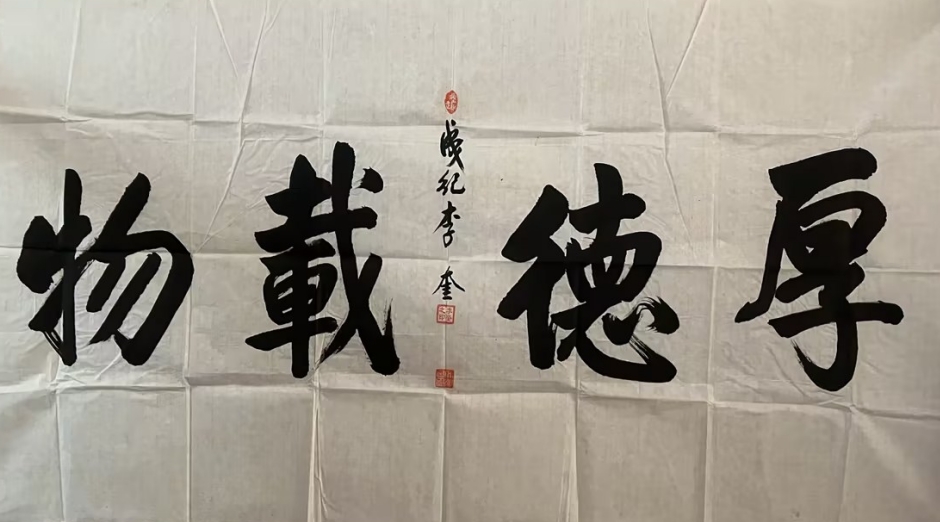 厚德載物
成纪李奎